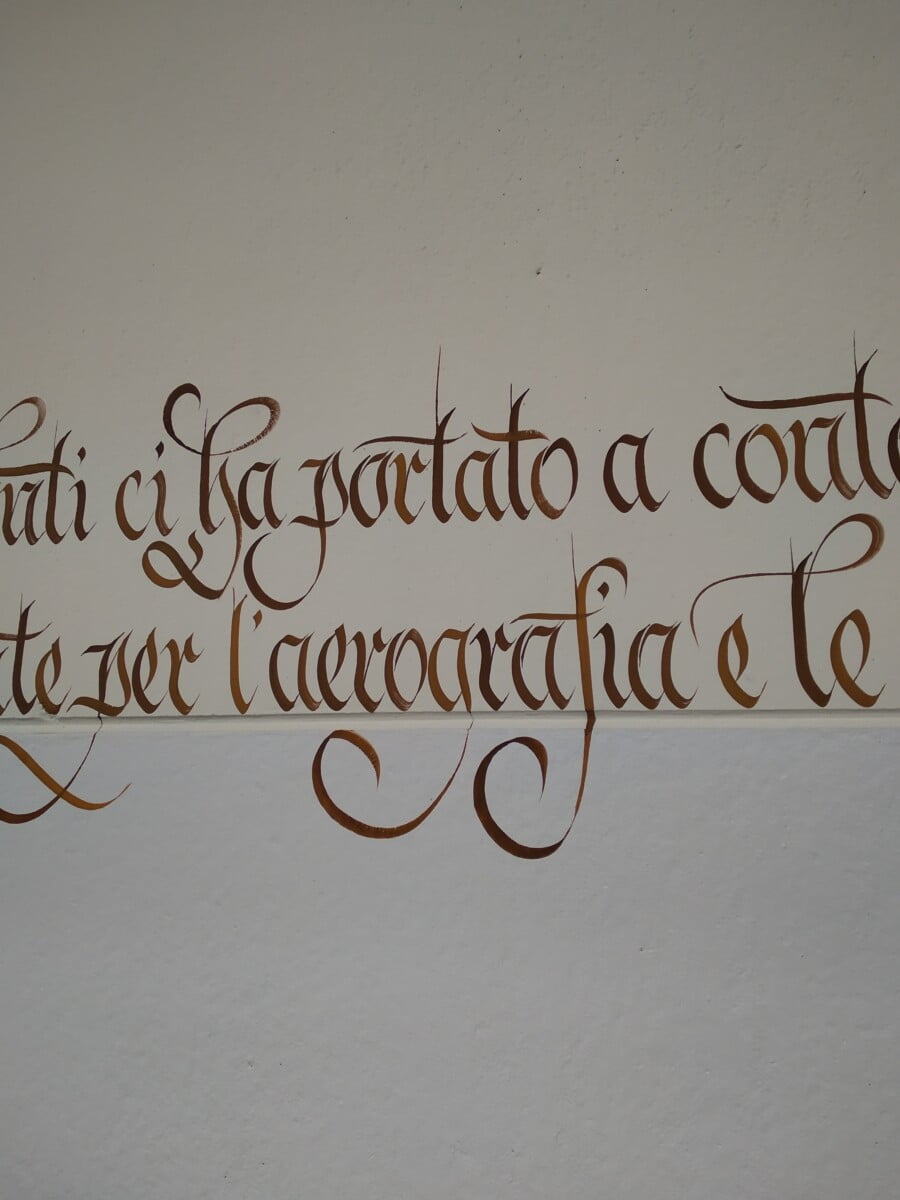 nti ci ha portato a conta
te per l'aerografia e le